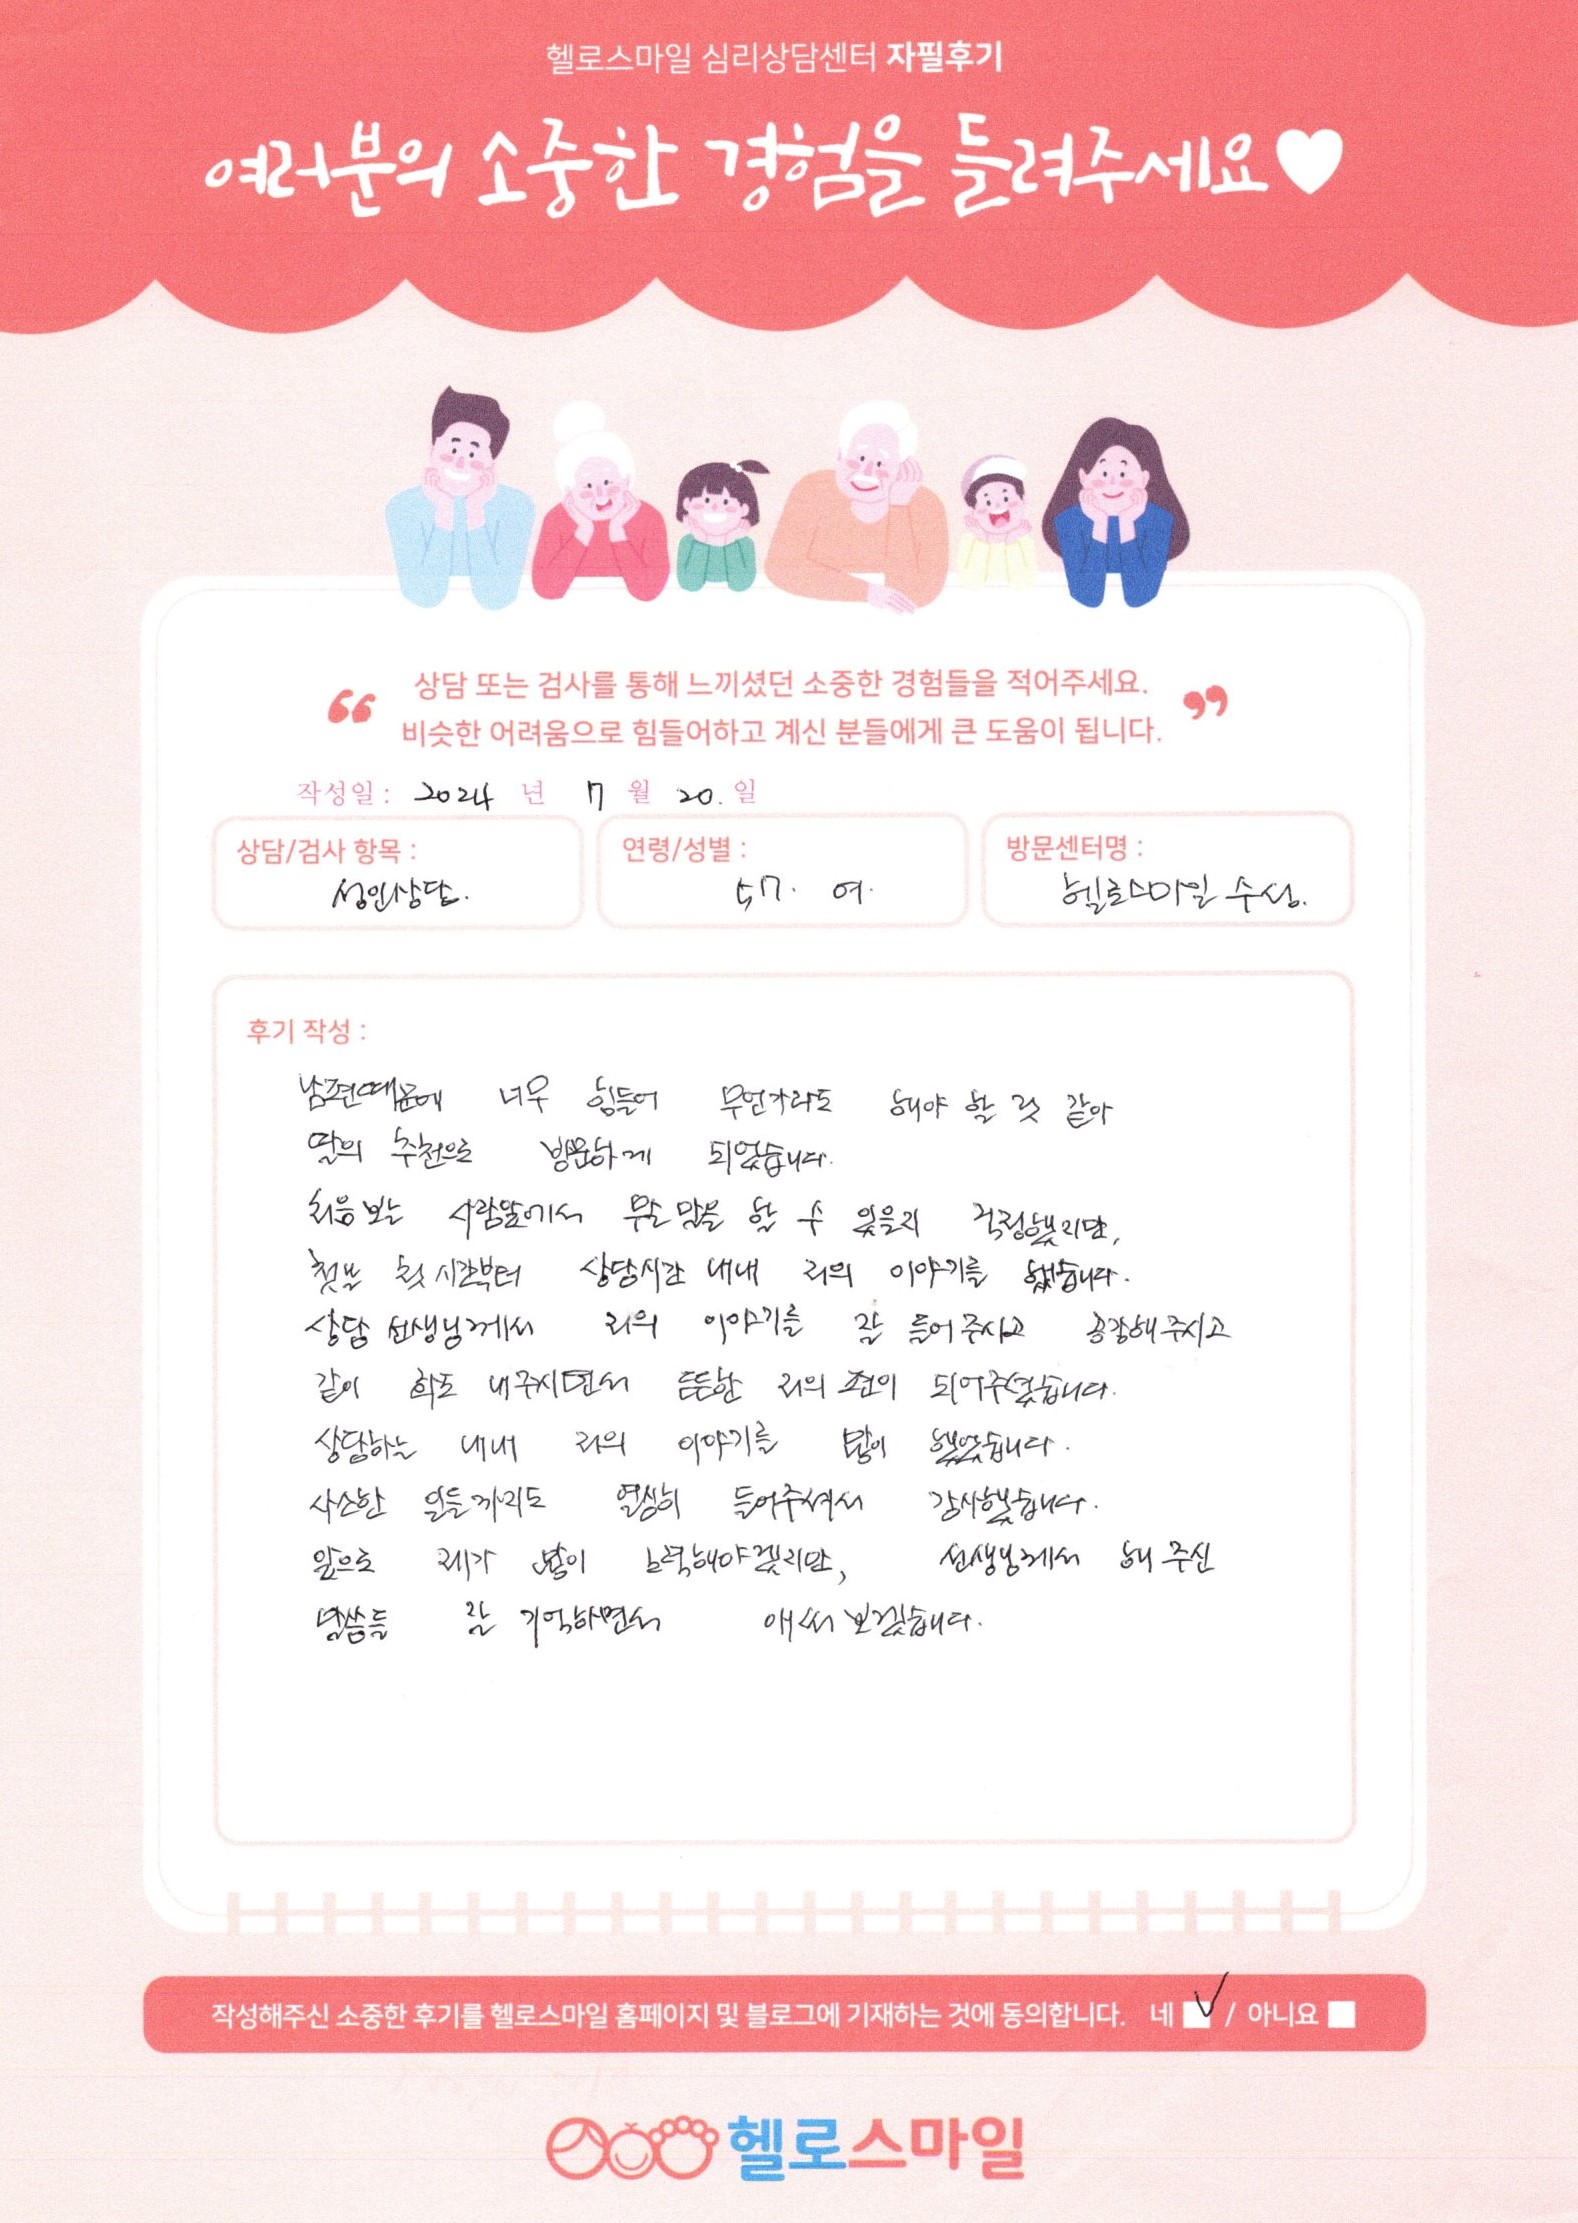 헬로스마일 심리상담센터 자필후기
여러분의 소중한 경험을 들려주세요
상담 또는 검사를 통해 느끼셨던 소중한 경험들을 적어주세요.
비슷한 어려움으로 힘들어하고 계신 분들에게 큰 도움이 됩니다.
작성일 : 2024 년 7 월 20. 일
상담/검사 항목 : 연령/성별 : 방문센터명 :
성인상담. 57. 여. 헬로스마일 수성.
후기 작성 :
남편때문에 너무 힘들어 무언가라도 해야 할 것 같아
딸의 추천으로 방문하게 되었습니다.
처음 보는 사람앞에서 무슨 말을 할 수 있을지 걱정했지만,
첫 시간부터 상담시간 내내 저의 이야기를 했습니다.
상담 선생님께서 저의 이야기를 잘 들어 주시고 공감해 주시고
같이 화도 내주시면서 든든한 저의 편이 되어주셨습니다.
상담하는 내내 저의 이야기를 많이 했었습니다.
사소한 일들까지도 열심히 들어주셔서 감사했습니다.
앞으로 제가 많이 노력해야겠지만, 선생님께서 해 주신
말씀들 잘 기억하면서 애써 보겠습니다.
작성해주신 소중한 후기를 헬로스마일 홈페이지 및 블로그에 기재하는 것에 동의합니다. 네 / 아니요
헬로스마일